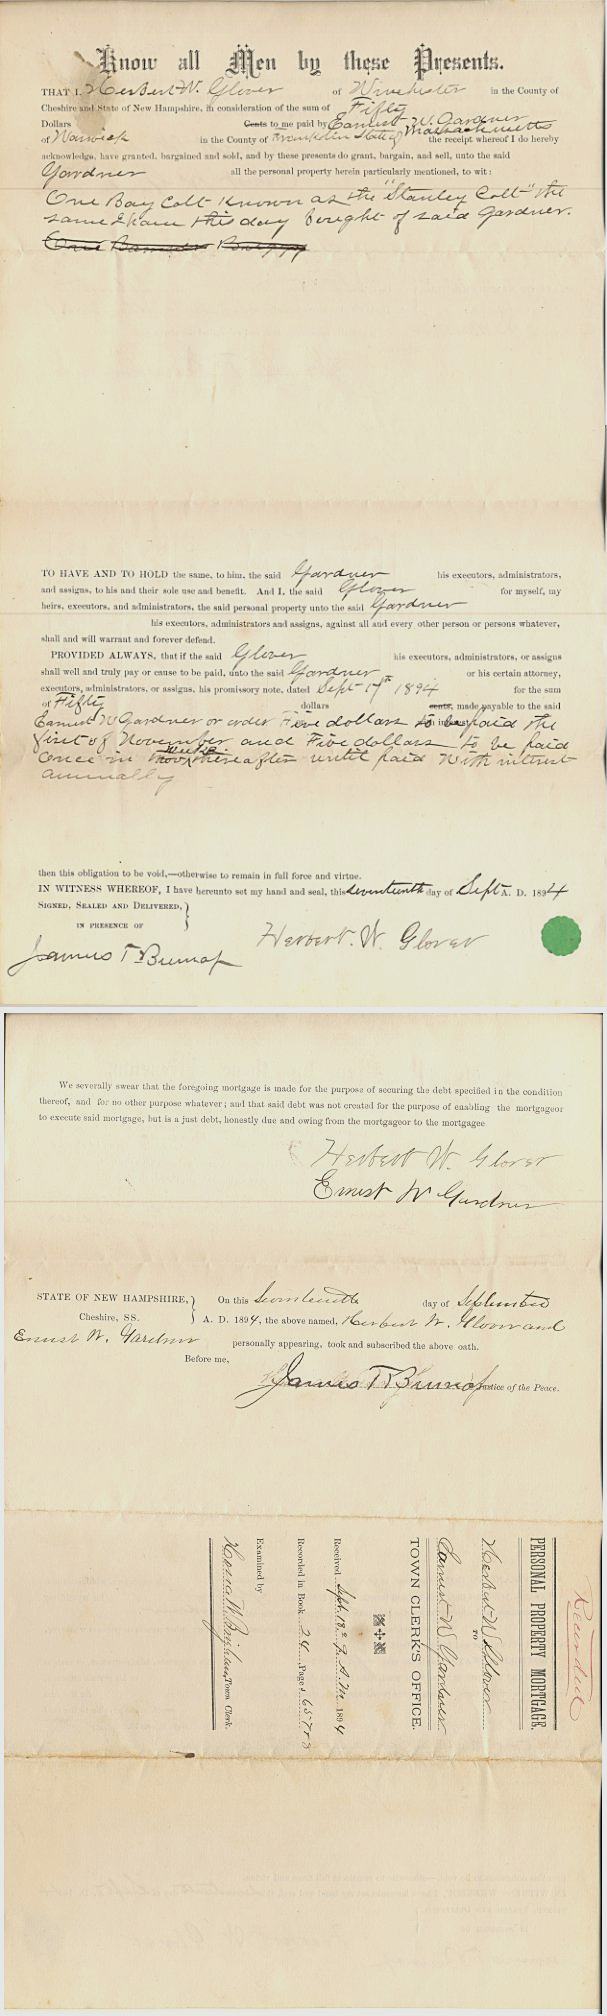 Know all Men by these Presents.
THAT I, Herbert W. Glover of Winchester in the County of
Cheshire and State of New Hampshire, in consideration of the sum of Fifty
Dollars Cents to me paid by Earnest W. Gardner
of Warwick in the County of Franklin State of Massachusetts the receipt whereof I do hereby
acknowledge, have granted, bargained and sold, and by these presents do grant, bargain, and sell, unto the said
Gardner all the personal property herein particularly mentioned, to wit:
One Bay Colt Known as the "Stanley Colt" the
same I have this day bought of said Gardner.
One Buggy
TO HAVE AND TO HOLD the same, to him, the said Gardner his executors, administrators,
and assigns, to his and their sole use and benefit. And I, the said Glover for myself, my
heirs, executors, and administrators, the said personal property unto the said Gardner
his executors, administrators and assigns, against all and every other person or persons whatever,
shall and will warrant and forever defend.
PROVIDED ALWAYS, that if the said Glover his executors, administrators, or assigns
shall well and truly pay or cause to be paid, unto the said Gardner or his certain attorney,
executors, administrators, or assigns, his promissory note, dated Sept 17th 1894 for the sum
of Fifty dollars cents, made payable to the said
Earnest W Gardner or order Five dollars to be paid the
first of November and Five dollars to be paid
once in thereafter until paid With interest
annually
then this obligation to be void,—otherwise to remain in full force and virtue.
IN WITNESS WHEREOF, I have hereunto set my hand and seal, this seventeenth day of Sept A. D. 1894
SIGNED, SEALED AND DELIVERED,
IN PRESENCE OF
Herbert. W. Glover
James
We severally swear that the foregoing mortgage is made for the purpose of securing the debt specified in the condition
thereof, and for no other purpose whatever; and that said debt was not created for the purpose of enabling the mortgageor
to execute said mortgage, but is a just debt, honestly due and owing from the mortgageor to the mortgagee
Herbert W. Glover
Ernest W Gardner
STATE OF NEW HAMPSHIRE, On this Seventeenth day of September
Cheshire, SS. A. D. 1894, the above named, Herbert W. Glover and
Ernest W. Gardner personally appearing, took and subscribed the above oath.
Before me,
James Justice of the Peace.
Recorded
PERSONAL PROPERTY MORTGAGE.
Herbert W Glover
TO
Earnest W. Gardner
TOWN CLERK'S OFFICE.
Received Sept. 18 A.M. 1894
Recorded in Book 24 Page
Examined by
Town Clerk.